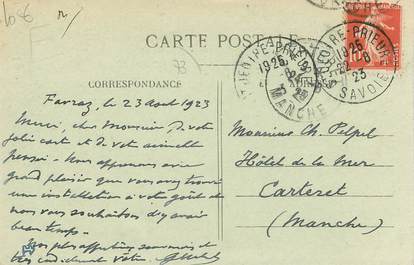 CARTE POSTALE
CORRESPONDANCE
Favraz, le 23 Août 1923
Merci, cher Monsieur de votre
jolie carte et de votre aimable
pensée. Nous apprenons avec
grand plaisir que vous avez trouvé
une installation à votre goût et
nous vous souhaitons d'y avoir
beau temps.
Nos plus affectueux souvenirs et
très cordialement vôtre
Monsieur Ch. Pelpel
Hôtel de la Mer
Carteret
(Manche)
MANCHE
1925
22-8
23
SAVOIE